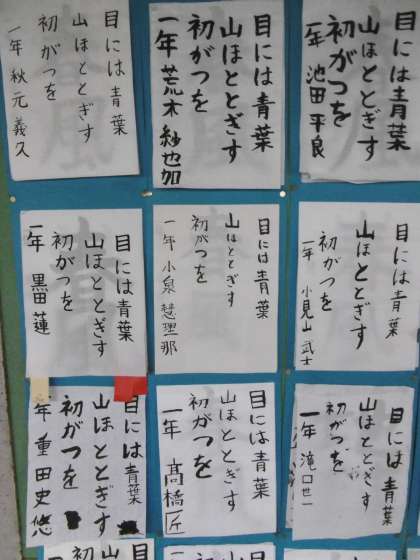 目には青葉
山ほととぎす
初がつを
一年 秋元 義久
目には青葉
山ほととぎす
初がつを
一年 荒木 紗也加
目には青葉
山ほととぎす
初がつを
一年 池田 平良
目には青葉
山ほととぎす
初がつを
一年 黒田 蓮
目には青葉
山ほととぎす
初がつを
一年 小泉 慧理那
目には青葉
山ほととぎす
初がつを
一年 小見山 武士
目には青葉
山ほととぎす
初がつを
年 重田 史悠
目には青葉
山ほととぎす
初がつを
一年 髙橋 匠
目には青葉
山ほととぎす
初がつを
一年 滝口 世一